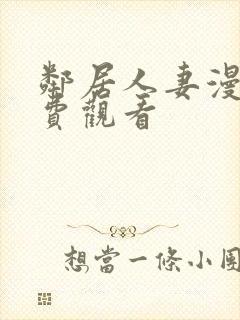 鄰居人妻漫
費觀看
想當一條小團